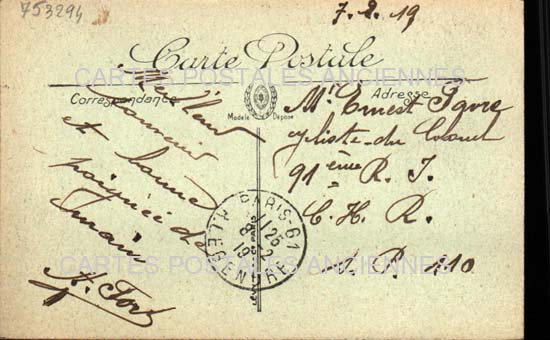 753294
7.2.19
Carte Postale
CARTES POSTALES ANCIENNES
Correspondance
Modèle Déposé
Adresse
Meilleur
souvenir
et bonne
poignée de
main
Mr Ernest Favre
cycliste du Colonel
91ème R. I.
C. H. R.
S. P. 110
PARIS-61
8-2
19
CARTES POSTALES ANCIENNES